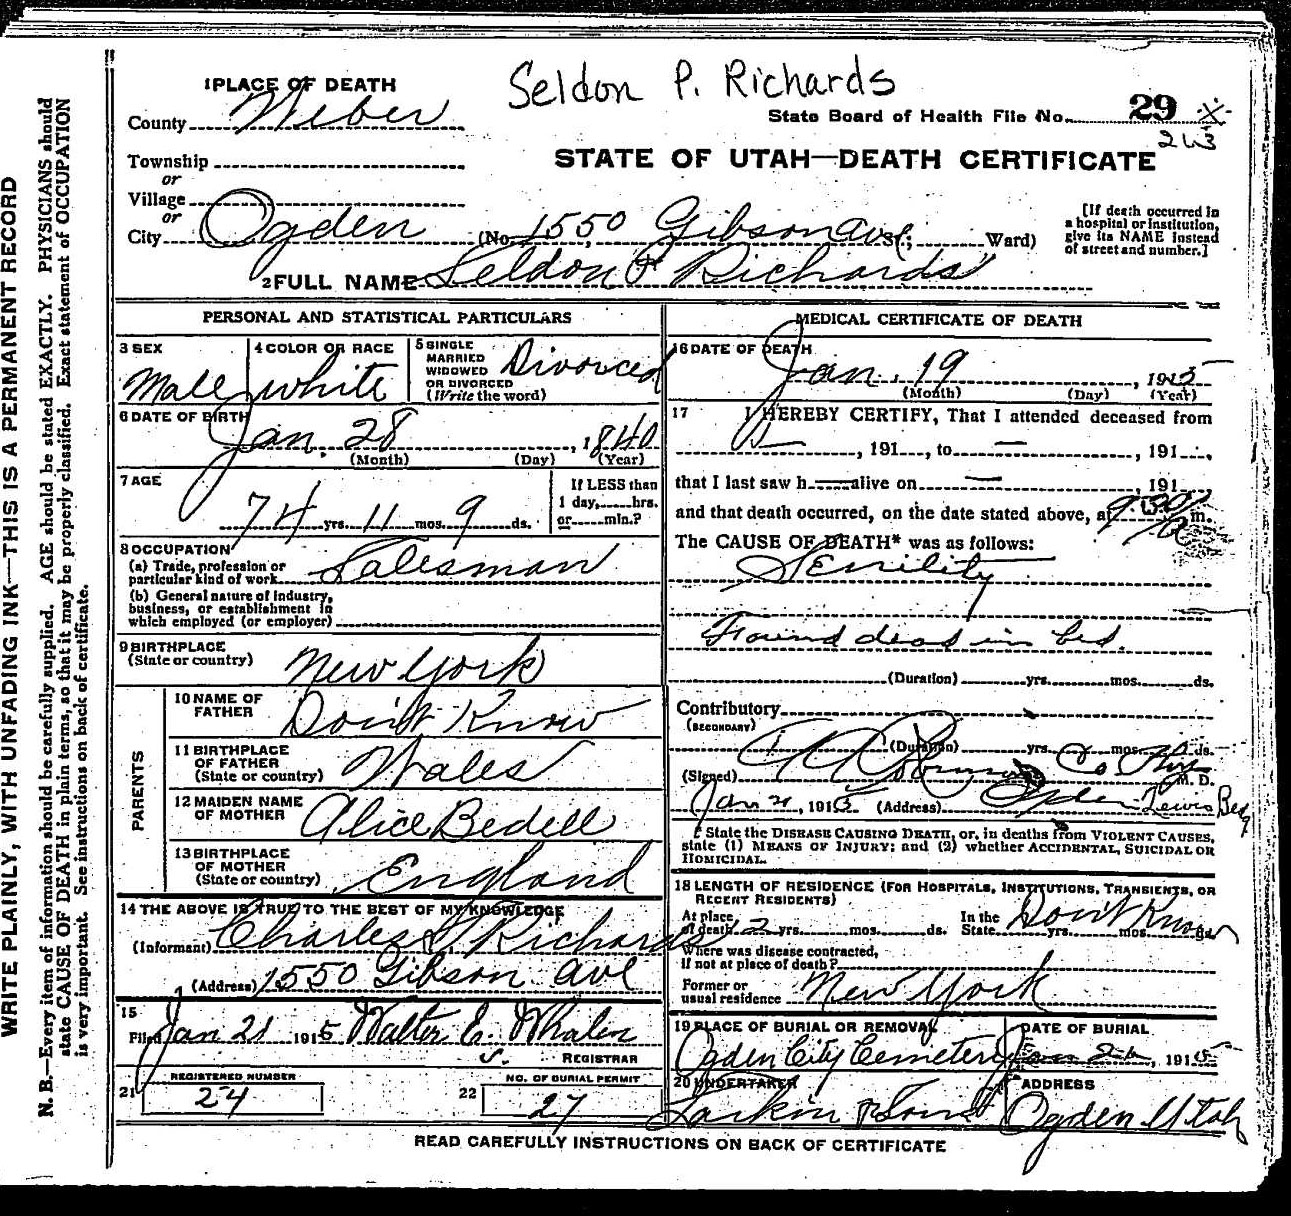 Seldon P. Richards
1 PLACE OF DEATH
County Weber
State Board of Health File No. 29 x
243
Township
STATE OF UTAH—DEATH CERTIFICATE
or
Village
or
City Ogden (No. 1550 Gibson Ave St.; Ward)
[If death occurred in
a hospital or institution,
give its NAME instead
of street and number.]
2 FULL NAME Seldon P Richards
PERSONAL AND STATISTICAL PARTICULARS
3 SEX
Male
4 COLOR OR RACE
white
5 SINGLE
MARRIED
WIDOWED
OR DIVORCED
(Write the word)
Divorced
6 DATE OF BIRTH
Jan. 28, 1840
(Month) (Day) (Year)
7 AGE
74 yrs. 11 mos. 9 ds.
If LESS than
1 day, hrs.
or min.?
8 OCCUPATION
(a) Trade, profession or
particular kind of work Salesman
(b) General nature of industry,
business, or establishment in
which employed (or employer)
9 BIRTHPLACE
(State or country) New York
PARENTS
10 NAME OF
FATHER Don't Know
11 BIRTHPLACE
OF FATHER
(State or country) Wales
12 MAIDEN NAME
OF MOTHER Alice Bedell
13 BIRTHPLACE
OF MOTHER
(State or country) England
14 THE ABOVE IS TRUE TO THE BEST OF MY KNOWLEDGE
(Informant) Charles Richards
(Address) 1550 Gibson Ave
15
Filed Jan 21 1915 Walter E. Whalen
REGISTRAR
21 REGISTERED NUMBER
24
22 NO. OF BURIAL PERMIT
27
MEDICAL CERTIFICATE OF DEATH
16 DATE OF DEATH
Jan. 19, 1915
(Month) (Day) (Year)
17 I HEREBY CERTIFY, That I attended deceased from
, 191 , to , 191 ,
that I last saw h alive on , 191
and that death occurred, on the date stated above, at 9:30 m.
The CAUSE OF DEATH* was as follows:
Senility
Found dead in bed.
(Duration) yrs. mos. ds.
Contributory
(SECONDARY)
(Duration) yrs. mos. ds.
(Signed) Co. Phy M. D.
Jan 21, 1915 (Address) Ogden Lewis Bldg
* State the DISEASE CAUSING DEATH, or, in deaths from VIOLENT CAUSES,
state (1) MEANS OF INJURY; and (2) whether ACCIDENTAL, SUICIDAL OR
HOMICIDAL.
18 LENGTH OF RESIDENCE (FOR HOSPITALS, INSTITUTIONS, TRANSIENTS, OR
RECENT RESIDENTS)
At place
of death 2 yrs. mos. ds.
In the
State Don't Know yrs. mos. ds.
Where was disease contracted,
if not at place of death?
Former or
usual residence New York
19 PLACE OF BURIAL OR REMOVAL
Ogden City Cemetery
DATE OF BURIAL
Jan 1915
20 UNDERTAKER
Larkin & Sons
ADDRESS
Ogden Utah
READ CAREFULLY INSTRUCTIONS ON BACK OF CERTIFICATE
WRITE PLAINLY, WITH UNFADING INK—THIS IS A PERMANENT RECORD
N. B.—Every item of information should be carefully supplied. AGE should be stated EXACTLY. PHYSICIANS should
state CAUSE OF DEATH in plain terms, so that it may be properly classified. Exact statement of OCCUPATION
is very important. See instructions on back of certificate.